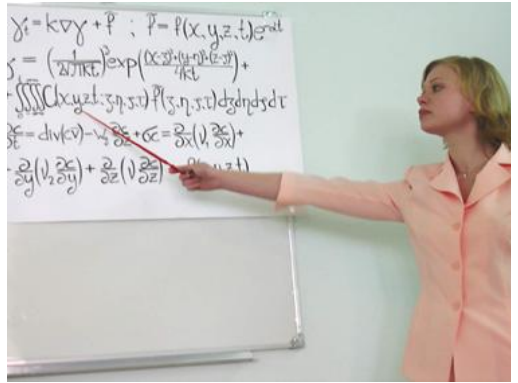 γt = k∇γ + f̃ ; f̃ = f(x, y, z, t)e^-αt
γ = (1/2√πkt)³ exp((x-ξ)²+(y-η)²+(z-ζ)²/4kt) +
+ ∫∫∫∫ C(x,y,z,t;ξ,η,ζ,τ) f̃(ξ,η,ζ,τ)dξdηdζdτ
∂c/∂t = div(cv) - ∂c/∂z + σc = ∂/∂x(ν, ∂c/∂x) +
+ ∂/∂y(ν₂ ∂c/∂y) + ∂/∂z(ν ∂c/∂z) y,z,t)